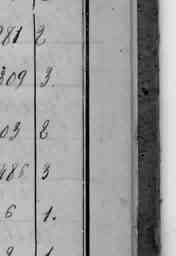 981 2
309 3
03 2
486 3
6 1.